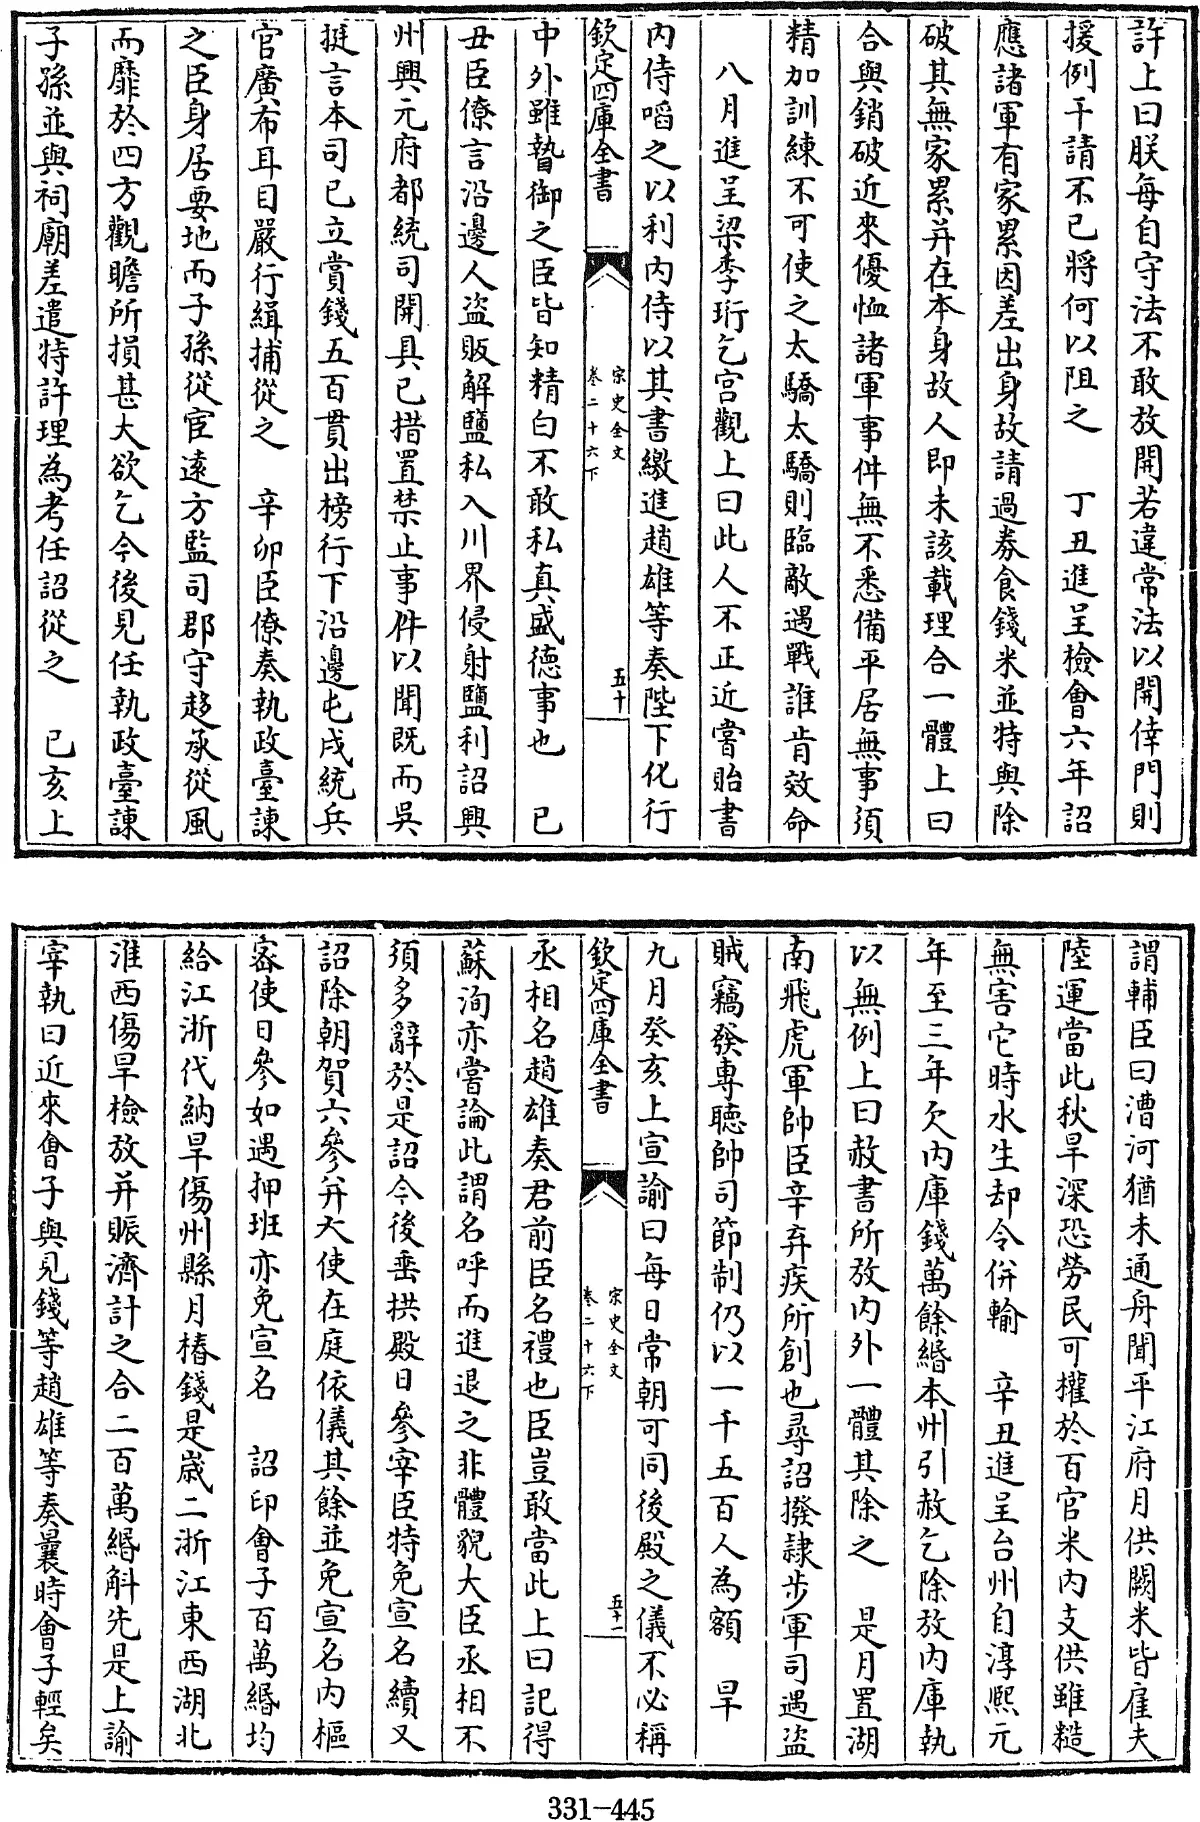 許上曰朕每自守法不敢放開若違常法以開倖門則
援例干請不已將何以阻之　丁丑進呈檢會六年詔
應諸軍有家累因差出身故請過券食錢米並特與除
破其無家累并在本身故人即未該載理合一體上曰
合與銷破近來優恤諸軍事件無不悉備平居無事須
精加訓練不可使之太驕太驕則臨敵遇戰誰肯效命
八月進呈梁季珩乞宮觀上曰此人不正近嘗貽書
内侍啗之以利内侍以其書繳進趙雄等奏陛下化行
欽定四庫全書
宋史全文
卷二十六下
五十
中外雖贄御之臣皆知精白不敢私真盛德事也　已
丑臣僚言沿邊人盗販解鹽私入川界侵射鹽利詔興
州興元府都統司開具已措置禁止事件以聞既而吳
挺言本司已立賞錢五百貫出榜行下沿邊屯戍統兵
官廣布耳目嚴行緝捕從之　辛卯臣僚奏執政臺諫
之臣身居要地而子孫從宦遠方監司郡守趍承從風
而靡於四方觀瞻所損甚大欲乞今後見任執政臺諫
子孫並與祠廟差遣特許理為考任詔從之　已亥上
謂輔臣曰漕河猶未通舟聞平江府月供闕米皆雇夫
陸運當此秋旱深恐勞民可權於百官米内支供雖糙
無害它時水生却令併輸　辛丑進呈台州自淳熙元
年至三年欠内庫錢萬餘緡本州引赦乞除放内庫執
以無例上曰赦書所放内外一體其除之　是月置湖
南飛虎軍帥臣辛弃疾所創也尋詔撥隸步軍司遇盜
賊竊發專聽帥司節制仍以一千五百人為額　旱
九月癸亥上宣諭曰每日常朝可同後殿之儀不必稱
欽定四庫全書
宋史全文
卷二十六下
五十一
丞相名趙雄奏君前臣名禮也臣豈敢當此上曰記得
蘇洵亦嘗論此謂名呼而進退之非體貌大臣丞相不
須多辭於是詔今後垂拱殿日參宰臣特免宣名續又
詔除朝賀六參并大使在庭依儀其餘並免宣名内樞
密使日參如遇押班亦免宣名　詔印會子百萬緡均
給江浙代納旱傷州縣月樁錢是歲二浙江東西湖北
淮西傷旱檢放并賑濟計之合二百萬緡斛先是上諭
宰執曰近來會子與見錢等趙雄等奏曩時會子輕矣
331-445